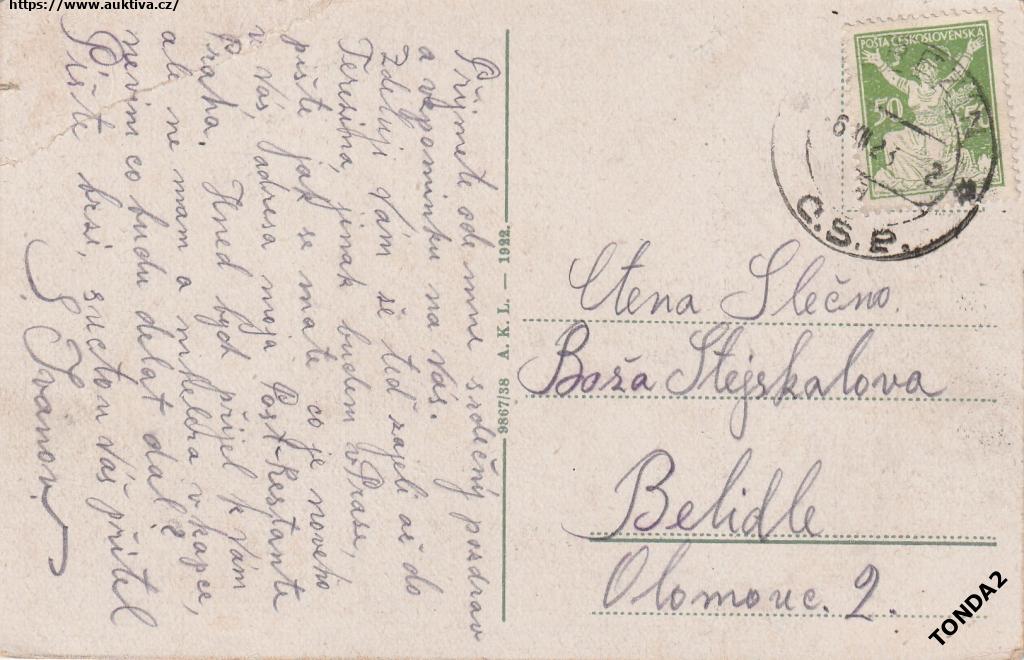 https://www.auktiva.cz/
Přijmete ode mne srdečný pozdrav
a vzpominku na Vás.
Zděluji Vám že teď zajeli až do
Teresína, jinak budem w Praze,
pište jak se mate co je noveho
v Vás, adresa moja Post-Restante
Praha. Hned bych přijel k Vám
ale ne mam a mikelcka v kapce,
nevim co budu dělat dál?
Pište brzi, suctou Váš přitel
Ivanow.
9867/38 A. K. L. — 1922.
POŠTA ČESKOSLOVENSKA
50
6 XII 23
2
Č.S.P.
Ctena Slečno
Boža Stejskalova
Belidle
Olomouc. 2.
TONDA2